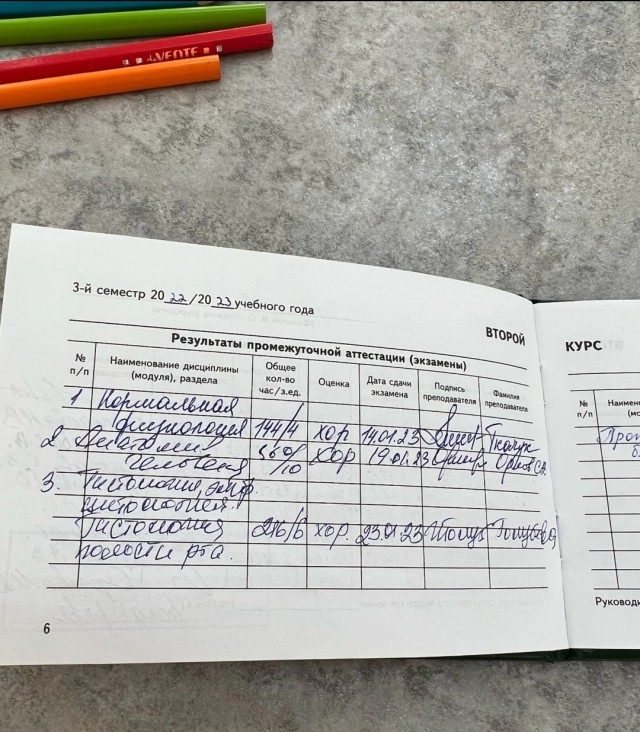 VENTE
3-й семестр 2022/2023 учебного года
ВТОРОЙ
Результаты промежуточной аттестации (экзамены)
№ п/п Наименование дисциплины (модуля), раздела Общее кол-во час/з.ед. Оценка Дата сдачи экзамена Подпись преподавателя Фамилия преподавателя
1 Нормальная
физиология 144/4 хор 14.01.23 Ткачук
2 Анатомия
человека 360/10 хор 19.01.23
3. Гистология, эмбр.
цитология.
Гистология 216/6 хор. 23.01.23
полости рта.
6
КУРС
№ п/п
Руковод